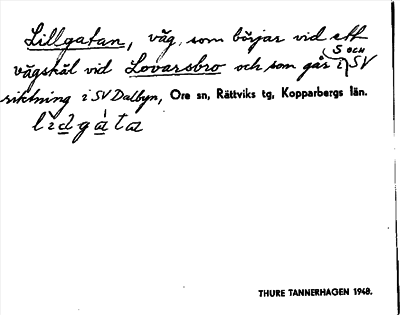 Lillgatan, väg, som börjar vid ett
vägskäl vid Lovarsbro och som går i S OCH SV
riktning i SV Dalbyn, Ore sn, Rättviks tg, Kopparbergs län.
THURE TANNERHAGEN 1948.